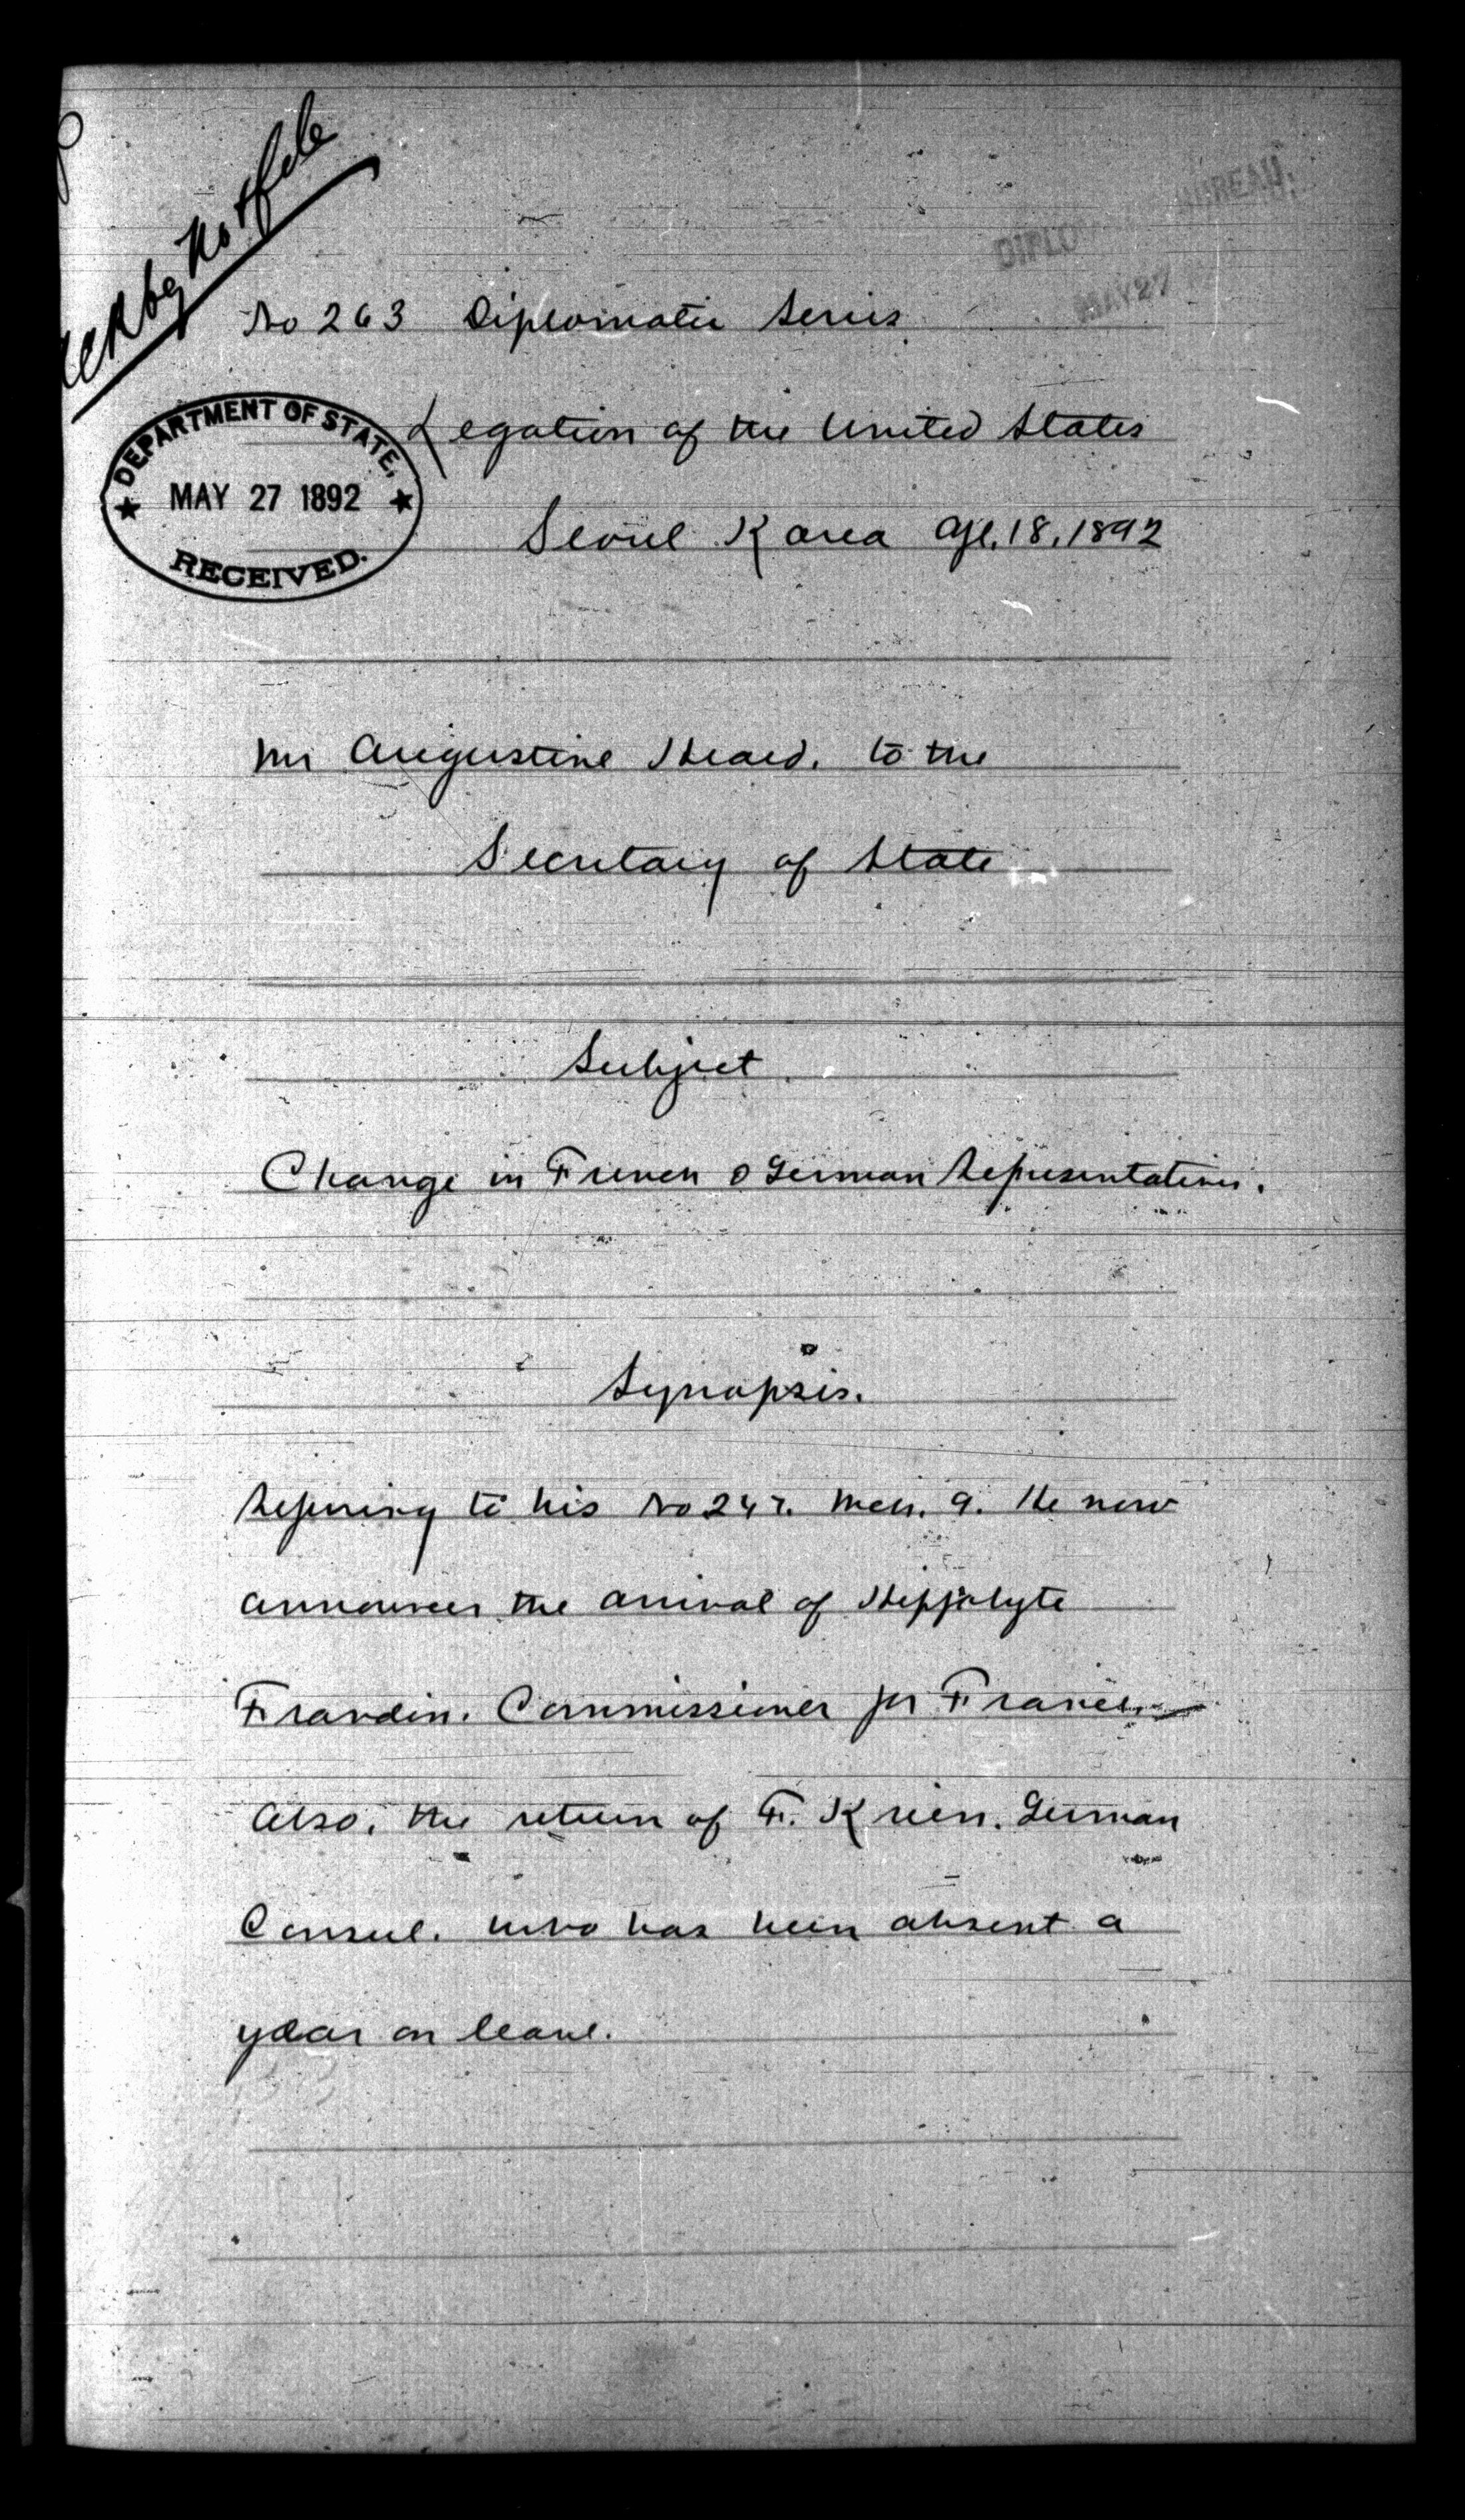 Ack by Not file
DIPLO BUREAU.
MAY 27
No 263 Diplomatic Series
DEPARTMENT OF STATE,
MAY 27 1892
RECEIVED.
Legation of the United States
Seoul Korea Apl. 18, 1892
Mr Augustine Heard. to the
Secretary of State
Subject
Change in French & German Representatives.
Synopsis.
Refering to his No 247. Mch. 9. He now
announces the arrival of Hippolyte
Frandin. Commissioner for France.
Also, the return of F. Krien. German
Consul. who has been absent a
year on leave.